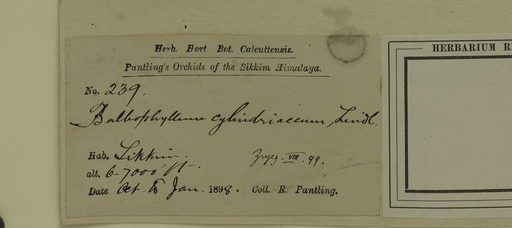 Herb. Hort Bot. Calcuttensis.
Pantling's Orchids of the Sikkim Himalaya.
No. 239.
Bulbophyllum cylindriaceum, Lindl.
Hab. Sikkim.
alt. 6-7000 ft.
VIII. 99.
Date Oct. to Jan. 1898. Coll. R. Pantling.
HERBARIUM